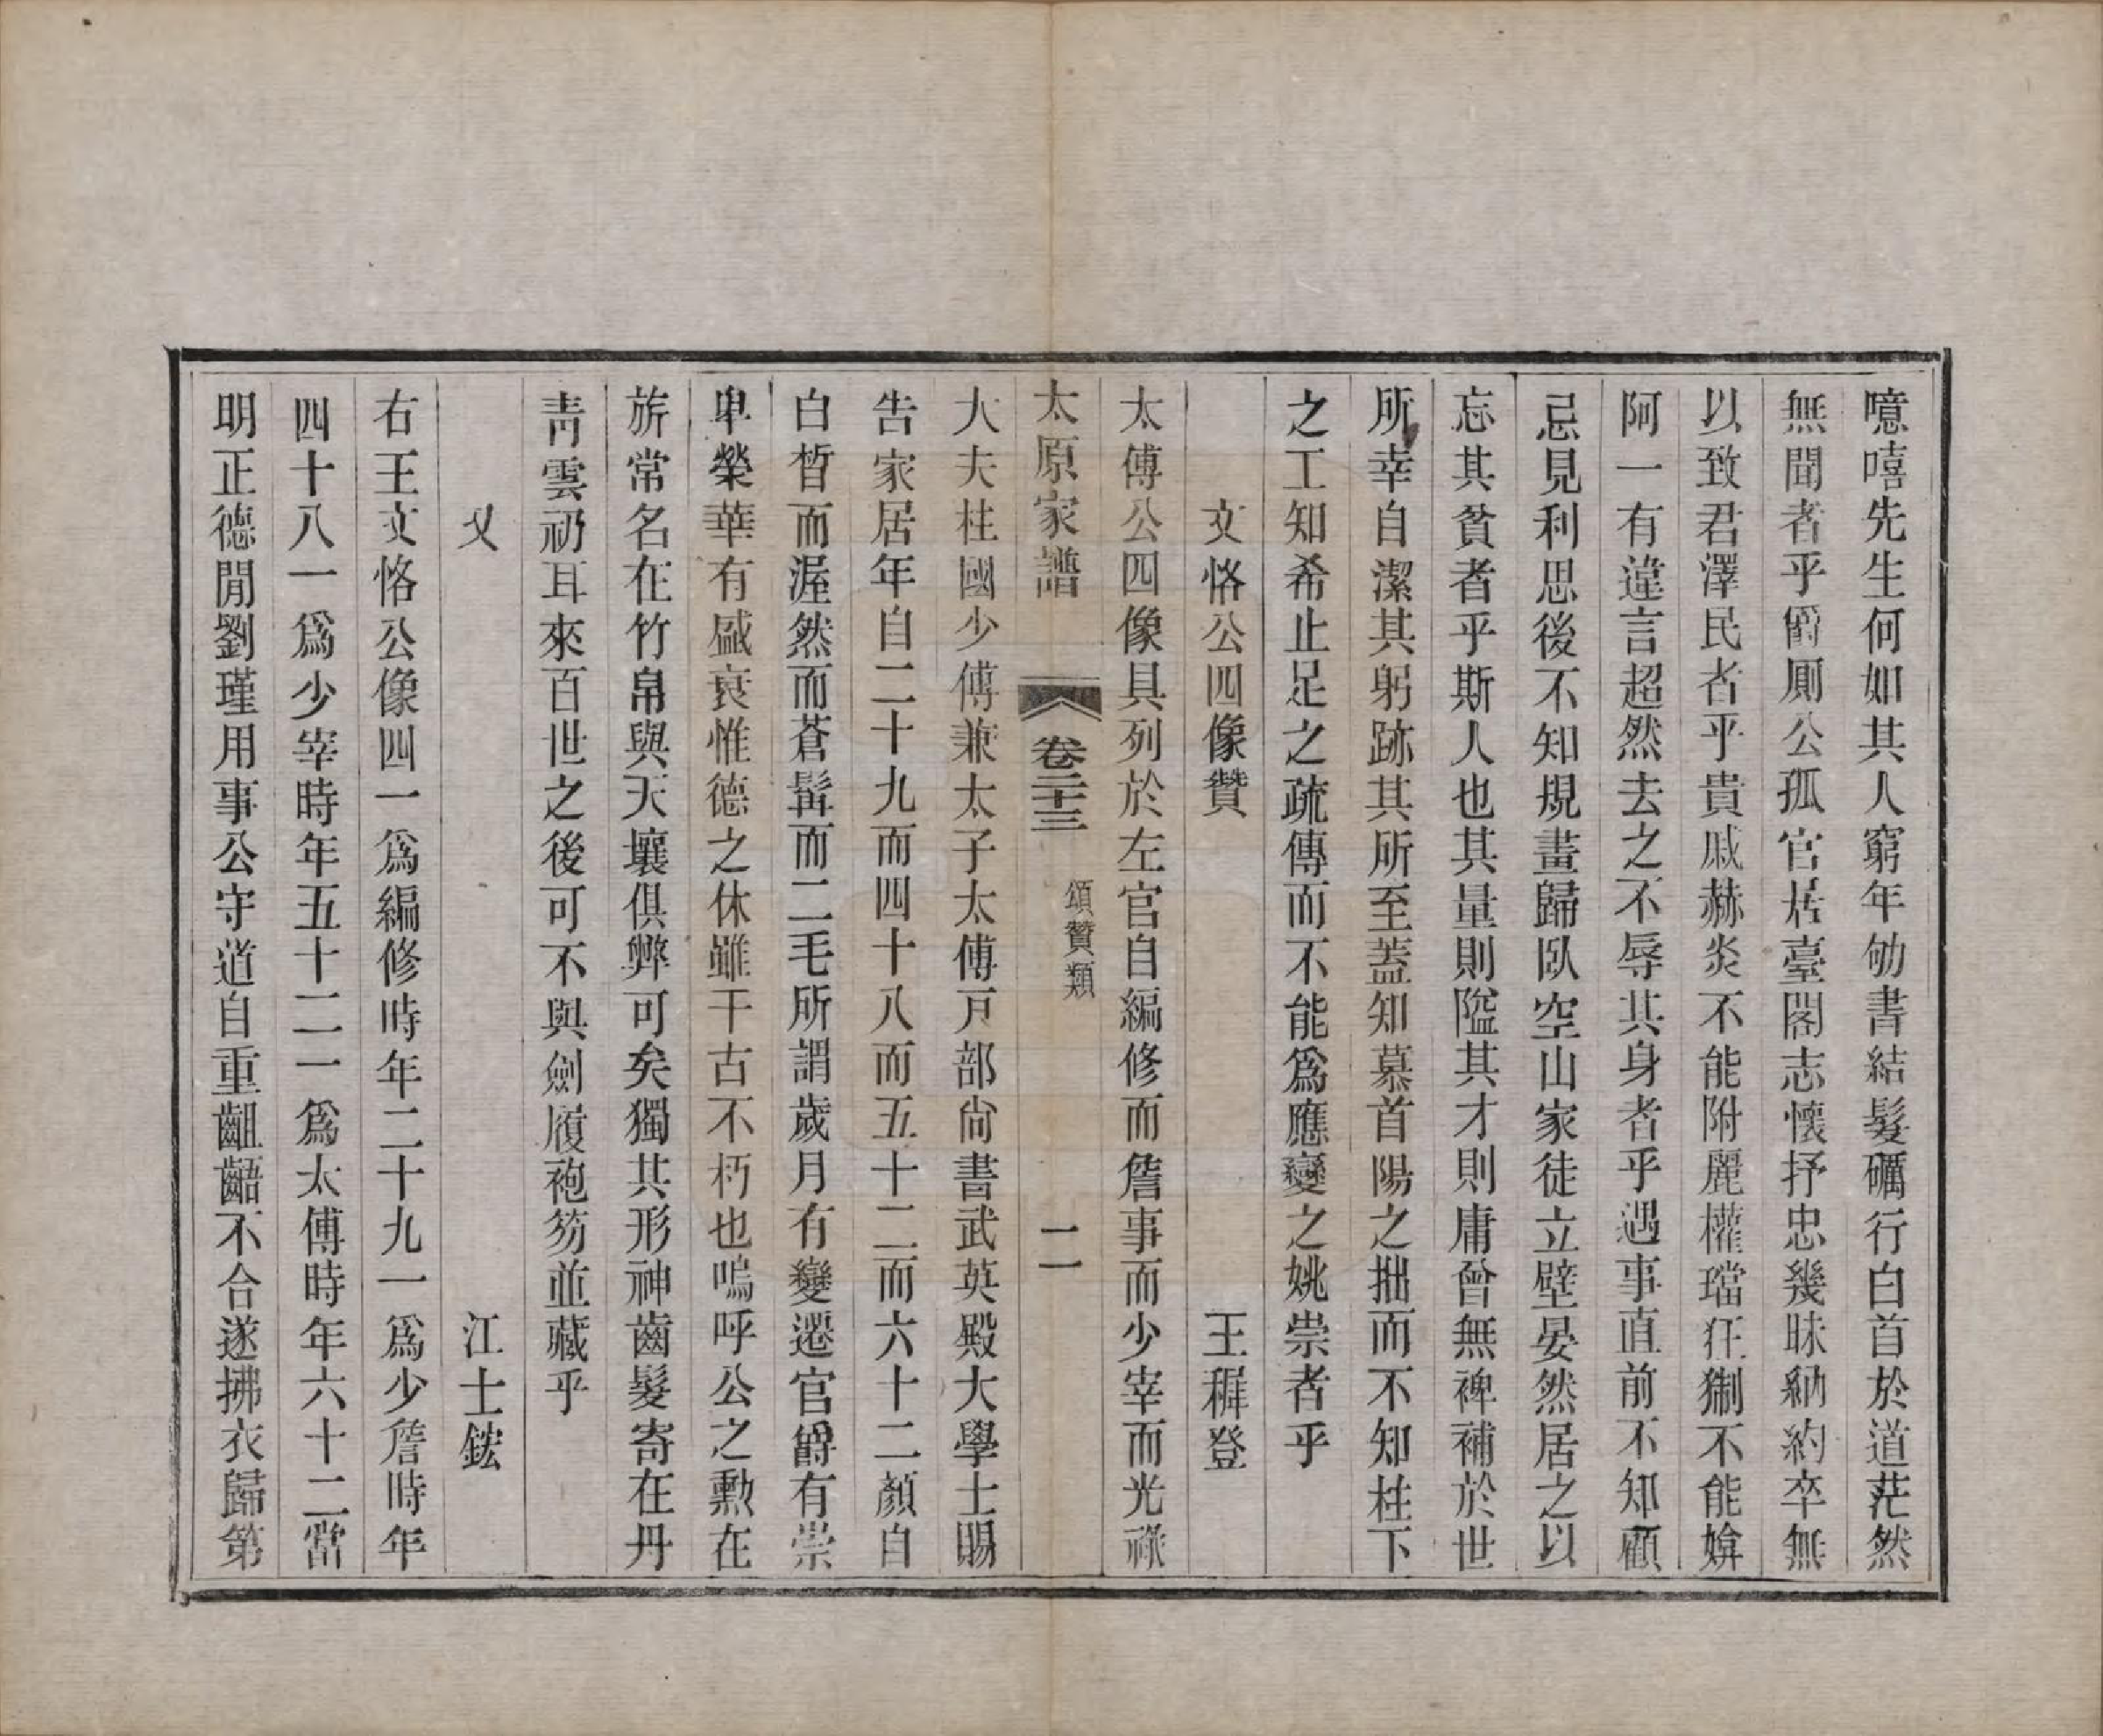 噫嘻先生何如其人窮年劬書結髮礪行白首於道茫然
無聞者乎爵厠公孤官居臺閣志懷抒忠幾昧納約卒無
以致君澤民者乎貴戚赫炎不能附麗權璫狂猘不能媕
阿一有違言超然去之不辱其身者乎遇事直前不知顧
忌見利思後不知規畫歸臥空山家徒立壁晏然居之以
忘其貧者乎斯人也其量則隘其才則庸曾無裨補於世
所幸自潔其躬跡其所至蓋知慕首陽之拙而不知柱下
之工知希止足之疏傳而不能爲應變之姚崇者乎
文恪公四像贊 王穉登
太傅公四像具列於左官自編修而詹事而少宰而光祿
太原家譜 卷二十三 頌贊類 二
大夫柱國少傅兼太子太傅戸部尙書武英殿大學士賜
告家居年自二十九而四十八而五十二而六十二顏自
白晳而渥然而蒼髯而二毛所謂歲月有變遷官爵有崇
卑榮華有盛衰惟德之休雖千古不朽也嗚呼公之勳在
旂常名在竹帛與天壤俱弊可矣獨其形神齒髮寄在丹
靑雲礽耳來百世之後可不與劍履袍笏並藏乎
又 江士鋐
右王文恪公像四一爲編修時年二十九一爲少詹時年
四十八一爲少宰時年五十二一爲太傅時年六十二當
明正德閒劉瑾用事公守道自重齟齬不合遂拂衣歸第